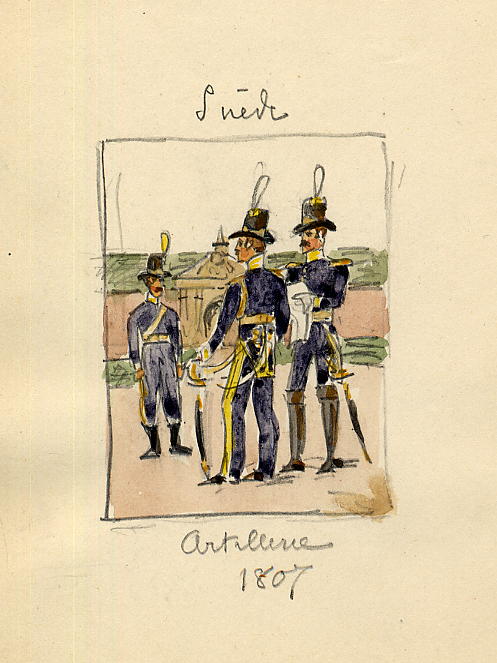 Suède
Artillerie
1807